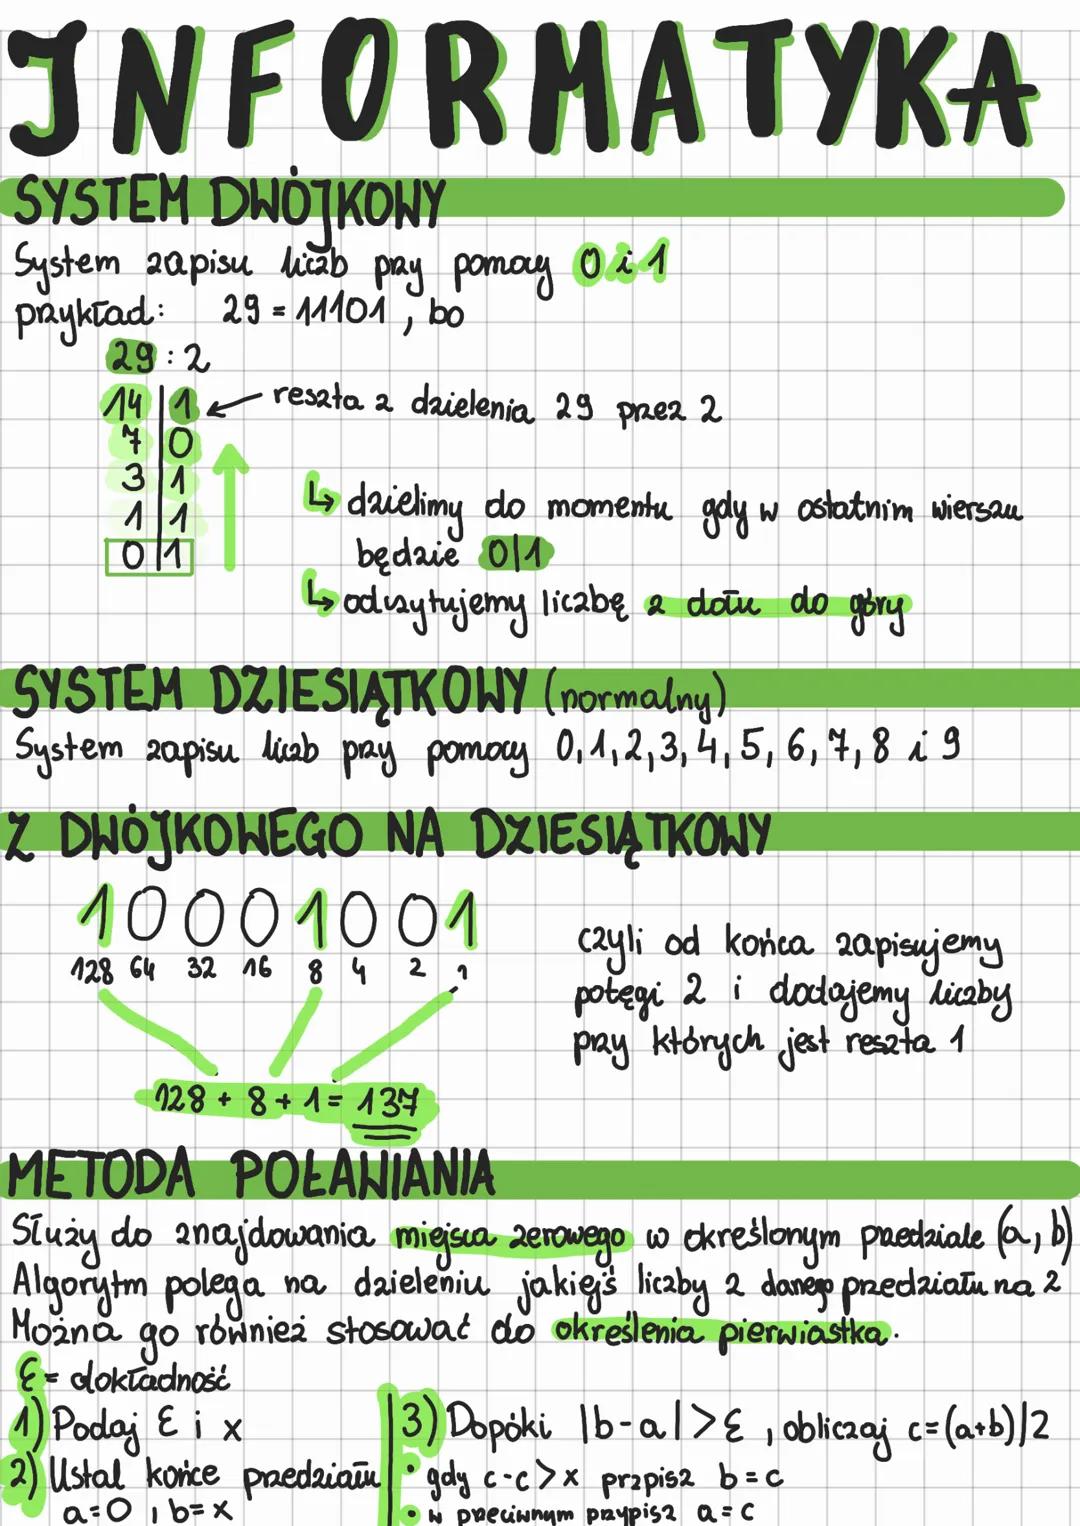 INFORMATYKA
SYSTEM DWÓJKOWY
System zapisu liczb przy pomocy 0 i 1
przykład: 29 = 11101, bo
29 : 2
14 | 1 reszta z dzielenia 29 przez 2
7 | 0
3 | 1
1 | 1
0 | 1
↳ dzielimy do momentu gdy w ostatnim wierszu
będzie 0|1
↳ odczytujemy liczbę z dołu do góry
SYSTEM DZIESIĄTKOWY (normalny)
System zapisu liczb przy pomocy 0, 1, 2, 3, 4, 5, 6, 7, 8 i 9
Z DWÓJKOWEGO NA DZIESIĄTKOWY
1 0 0 0 1 0 0 1
128 64 32 16 8 4 2 1
128 + 8 + 1 = 137
czyli od końca zapisujemy
potęgi 2 i dodajemy liczby
przy których jest reszta 1
METODA POŁAWIANIA
Służy do znajdowania miejsca zerowego w określonym przedziale (a, b)
Algorytm polega na dzieleniu jakiejś liczby z danego przedziału na 2
Można go również stosować do określenia pierwiastka.
ε = dokładność
1) Podaj ε i x
2) Ustal końce przedziału
a=0, b=x
3) Dopóki |b-a| > ε, obliczaj c=(a+b)/2
• gdy c·c > x przpisz b = c
• w przeciwnym przypisz a = c